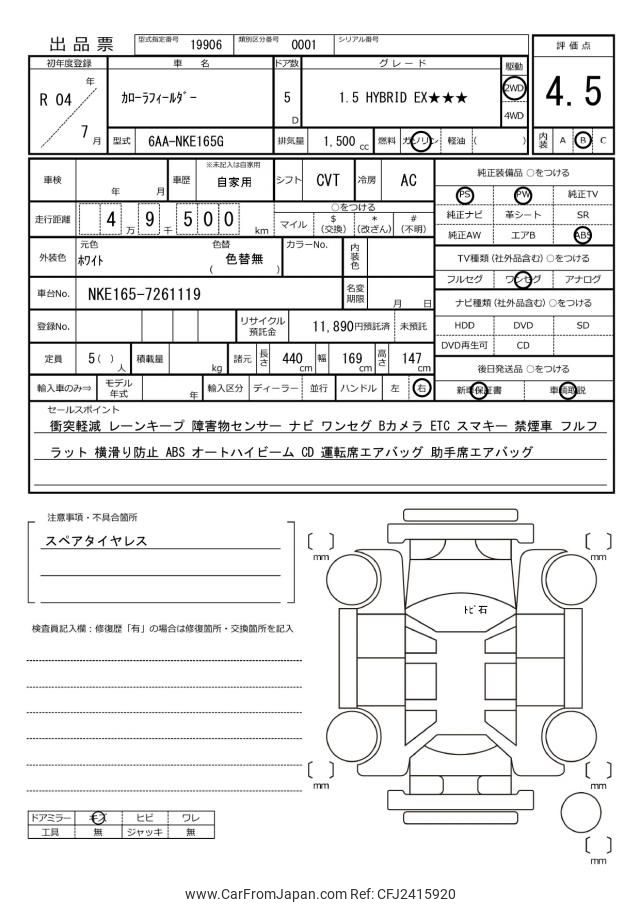 出品票 型式指定番号 19906 類別区分番号 0001 シリアル番号
評価点
4.5
内装 A B C
初年度登録 車名 ドア数 グレード 駆動
R 04 年 7 月
ｶﾛｰﾗﾌｨｰﾙﾀﾞｰ 5 D 1.5 HYBRID EX★★★ 2WD
4WD
型式 6AA-NKE165G 排気量 1,500 cc 燃料 ガソリン 軽油 ( )
車検 年 月 車歴 ※未記入は自家用 自家用 シフト CVT 冷房 AC
走行距離 4 万 9 千 5 0 0 km
○をつける
マイル $ (交換) * (改ざん) # (不明)
外装色 元色 ﾎﾜｲﾄ 色替 ( 色替無 ) カラーNo. 内装色
車台No. NKE165-7261119 名変期限 月 日
登録No. リサイクル預託金 11,890円預託済 未預託
定員 5 ( ) 人 積載量 kg 諸元 長さ 440 cm 幅 169 cm 高さ 147 cm
輸入車のみ⇒ モデル年式 年 輸入区分 ディーラー 並行 ハンドル 左 右
純正装備品 ○をつける
PS PW 純正TV
純正ナビ 革シート SR
純正AW エアB ABS
TV種類 (社外品含む) ○をつける
フルセグ ワンセグ アナログ
ナビ種類 (社外品含む) ○をつける
HDD DVD SD
DVD再生可 CD
後日発送品 ○をつける
新車保証書 車輌取説
セールスポイント
衝突軽減 レーンキープ 障害物センサー ナビ ワンセグ Bカメラ ETC スマキー 禁煙車 フルフ
ラット 横滑り防止 ABS オートハイビーム CD 運転席エアバッグ 助手席エアバッグ
注意事項・不具合箇所
スペアタイヤレス
検査員記入欄：修復歴「有」の場合は修復箇所・交換箇所を記入
mm
mm
ﾄﾋﾞ石
mm
mm
mm
ドアミラー キズ ヒビ ワレ
工具 無 ジャッキ 無
www.CarFromJapan.com Ref: CFJ2415920